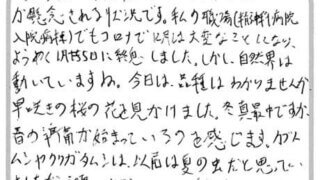 が懸念される状況です。私の職場(精神病院
入院病棟)でもコロナで12月は大変なことになり、
ようやく1月5日に終息しました。しかし、自然界は
動いていますね。今日は、品種はわかりませんが
早咲きの桜の花を見かけました。冬真最中ですが、
春の準備が始まっているのを感じます。ダム
ムシヤクワガタムシは、以前は夏の虫だと思ってい